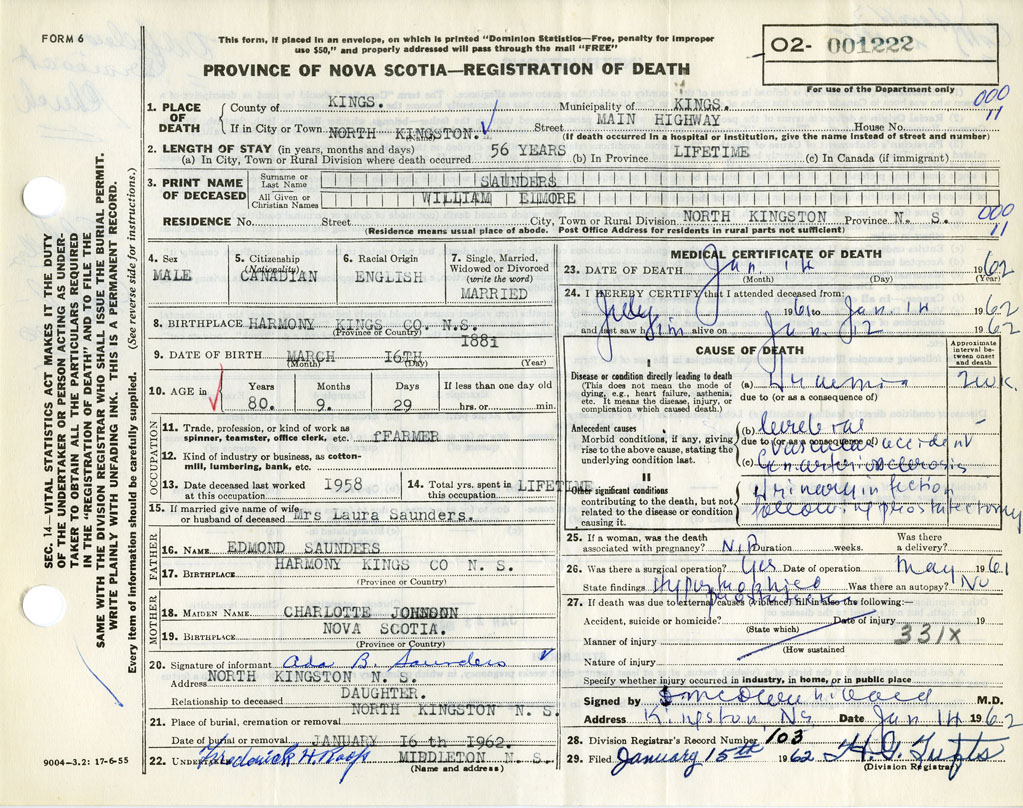 FORM 6
This form, if placed in an envelope, on which is printed "Dominion Statistics—Free, penalty for improper
use $50," and properly addressed will pass through the mail "FREE"
02- 001222
PROVINCE OF NOVA SCOTIA—REGISTRATION OF DEATH
For use of the Department only
SEC. 14—VITAL STATISTICS ACT MAKES IT THE DUTY
OF THE UNDERTAKER OR PERSON ACTING AS UNDER-
TAKER TO OBTAIN ALL THE PARTICULARS REQUIRED
IN THE "REGISTRATION OF DEATH" AND TO FILE THE
SAME WITH THE DIVISION REGISTRAR WHO SHALL ISSUE THE BURIAL PERMIT.
WRITE PLAINLY WITH UNFADING INK. THIS IS A PERMANENT RECORD.
Every item of Information should be carefully supplied. (See reverse side for instructions.)
1. PLACE OF DEATH County of KINGS. Municipality of KINGS. 000 11
If in City or Town NORTH KINGSTON. Street MAIN HIGHWAY House No.
(If death occurred in a hospital or institution, give the name instead of street and number)
2. LENGTH OF STAY (in years, months and days)
(a) In City, Town or Rural Division where death occurred 56 YEARS (b) In Province LIFETIME (c) In Canada (if immigrant)
3. PRINT NAME OF DECEASED Surname or Last Name SAUNDERS
All Given or Christian Names WILLIAM ELMORE
RESIDENCE No. Street City, Town or Rural Division NORTH KINGSTON Province N. S. 000 11
(Residence means usual place of abode. Post Office Address for residents in rural parts not sufficient)
4. Sex MALE
5. Citizenship (Nationality) CANADIAN
6. Racial Origin ENGLISH
7. Single, Married, Widowed or Divorced (write the word) MARRIED
8. BIRTHPLACE HARMONY KINGS CO. N.S.
(Province or Country)
9. DATE OF BIRTH MARCH 16TH 1881
(Month) (Day) (Year)
10. AGE in Years 80. Months 9. Days 29 If less than one day old hrs. or min.
OCCUPATION
11. Trade, profession, or kind of work as
spinner, teamster, office clerk, etc. fFARMER
12. Kind of industry or business, as cotton-
mill, lumbering, bank, etc.
13. Date deceased last worked at this occupation 1958 14. Total yrs. spent in this occupation LIFETIME.
15. If married give name of wife
or husband of deceased Mrs Laura Saunders.
FATHER
16. NAME EDMOND SAUNDERS
17. BIRTHPLACE HARMONY KINGS CO N.S.
(Province or Country)
MOTHER
18. MAIDEN NAME CHARLOTTE JOHNSON
19. BIRTHPLACE NOVA SCOTIA.
(Province or Country)
20. Signature of informant Ada B. Saunders
Address NORTH KINGSTON N.S.
Relationship to deceased DAUGHTER.
21. Place of burial, cremation or removal NORTH KINGSTON N. S.
Date of burial or removal JANUARY 16th 1962.
22. UNDERTAKER Frederick H. Roop MIDDLETON N. S.
(Name and address)
9004—3.2: 17-6-55
MEDICAL CERTIFICATE OF DEATH
23. DATE OF DEATH Jan. 14 1962
(Month) (Day) (Year)
24. I HEREBY CERTIFY that I attended deceased from:
July 1961 to Jan. 14 1962
and last saw him alive on Jan. 12 1962
CAUSE OF DEATH
Approximate interval between onset and death
I
Disease or condition directly leading to death
(This does not mean the mode of
dying, e.g., heart failure, asthenia,
etc. It means the disease, injury, or
complication which caused death.)
(a) Uraemia 2 wk.
due to (or as a consequence of)
Antecedent causes
Morbid conditions, if any, giving
rise to the above cause, stating the
underlying condition last.
(b) Cerebral
due to (or as a consequence of)
vascular accident
(c) Gen arteriosclerosis
II
Other significant conditions
contributing to the death, but not
related to the disease or condition
causing it.
Urinary infection
following prostatectomy
25. If a woman, was the death associated with pregnancy? Duration weeks. Was there a delivery?
26. Was there a surgical operation? Yes Date of operation May 1961
State findings Hypertrophied prostate Was there an autopsy? No
27. If death was due to external causes (violence) fill in also the following:—
Accident, suicide or homicide? Date of injury 19
(State which)
Manner of injury 331X
(How sustained
Nature of injury
Specify whether injury occurred in industry, in home, or in public place
Signed by M.D.
Address Kingston NS Date Jan 14 1962
28. Division Registrar's Record Number 103
29. Filed January 15th 1962
(Division Registrar)